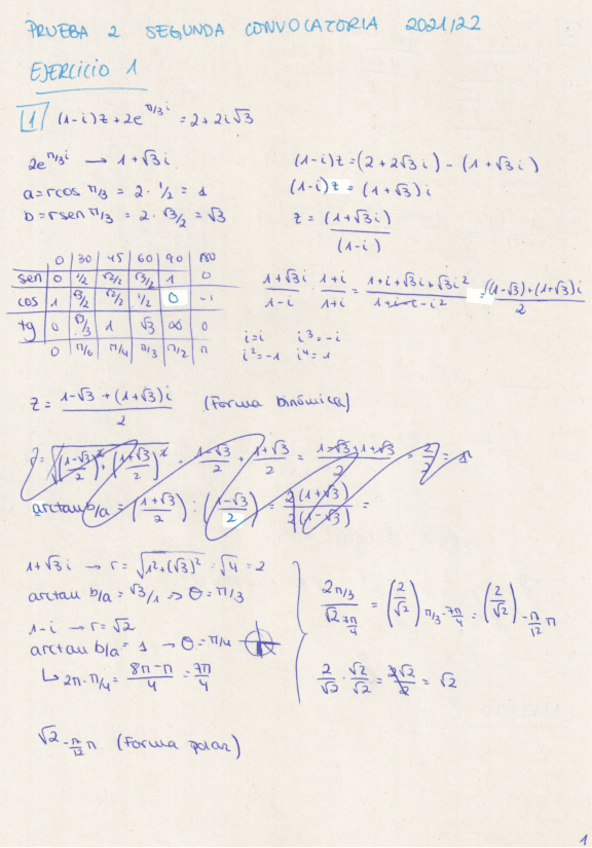 PRUEBA 2 SEGUNDA CONVOCATORIA 2021/22
EJERCICIO 1
1 (1-i)z + 2e^{π/3 i} = 2 + 2i√3
2e^{π/3 i} → 1+√3 i
a = r cos π/3 = 2 · 1/2 = 1
b = r sen π/3 = 2 · √3/2 = √3
(1-i)z = (2+2√3 i) - (1+√3 i)
(1-i)z = (1+√3) i
z = (1+√3 i)/(1-i)
0 | 30 | 45 | 60 | 90 | 180
sen | 0 | 1/2 | √2/2 | √3/2 | 1 | 0
cos | 1 | √3/2 | √2/2 | 1/2 | 0 | -1
tg | 0 | √3/3 | 1 | √3 | ∞ | 0
0 | π/6 | π/4 | π/3 | π/2 | π
(1+√3 i)/(1-i) · (1+i)/(1+i) = (1+i+√3 i+√3 i²)/(1+i-i-i²) = ((1-√3)+(1+√3)i)/2
i=i i³=-i
i²=-1 i⁴=1
z = (1-√3+(1+√3)i)/2 (Forma binómica)
r = √(((1-√3)/2)² + ((1+√3)/2)²) = (1-√3)/2 + (1+√3)/2 = (1-√3+1+√3)/2 = 2/2 = 1
arctan b/a = ((1+√3)/2) : ((1-√3)/2) = 2(1+√3)/2(1-√3) =
1+√3 i → r = √(1²+(√3)²) = √4 = 2
arctan b/a = √3/1 => θ = π/3
1-i → r = √2
arctan b/a = 1 → θ = π/4
↳ 2π - π/4 = (8π-π)/4 = 7π/4
2_{π/3}/√2_{7π/4} = (2/√2)_{π/3-7π/4} = (2/√2)_{-17/12 π}
2/√2 · √2/√2 = 2√2/2 = √2
√2_{-17/12 π} (Forma polar)
1